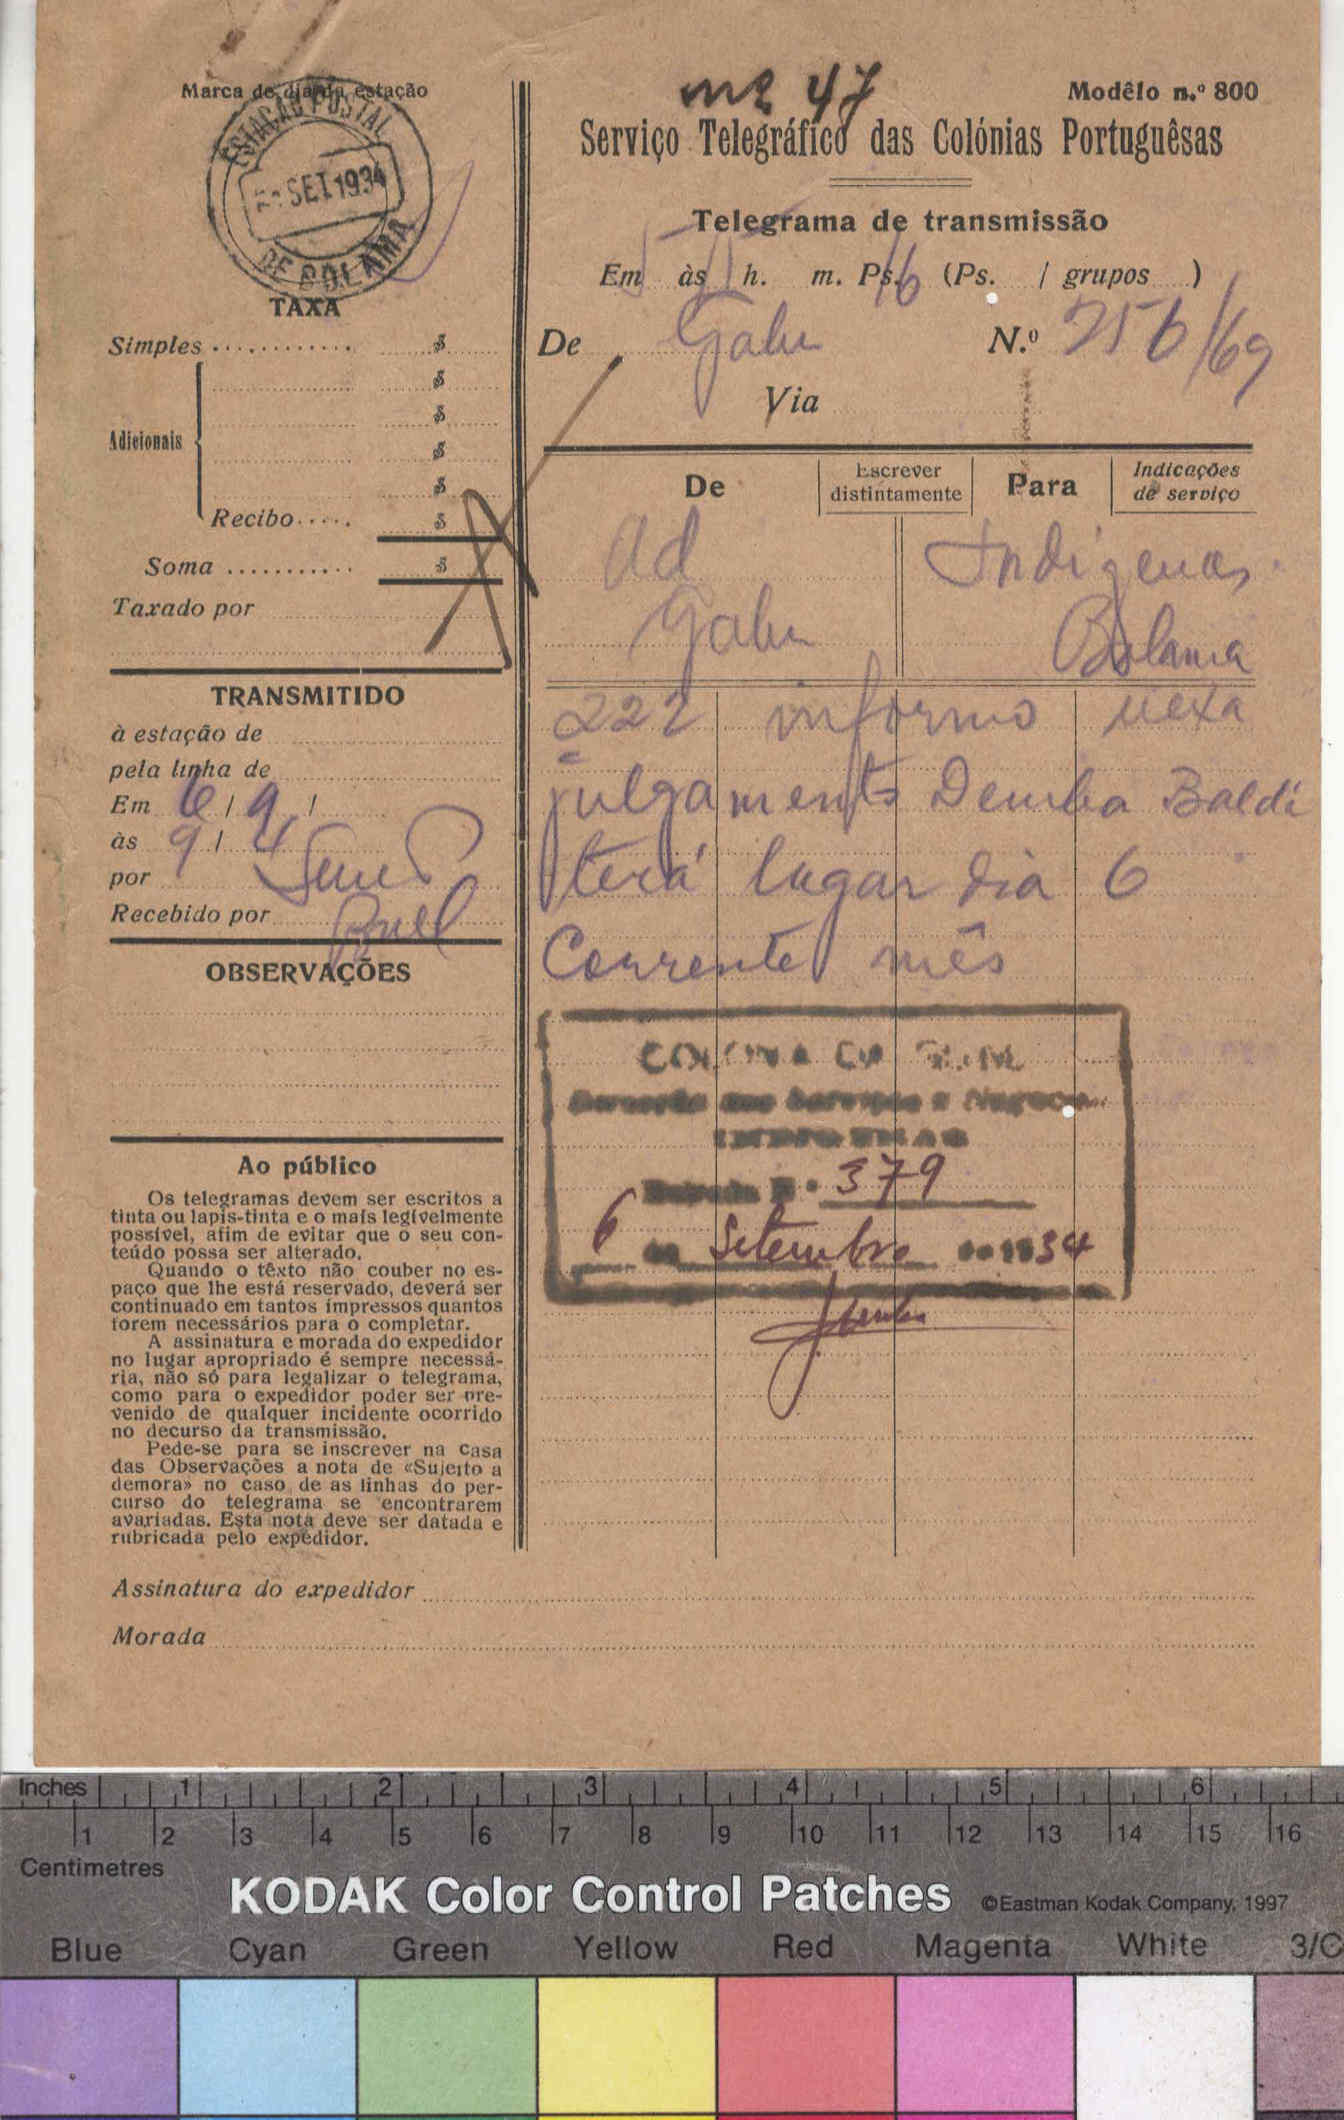 Marca do dia da estação
ESTAÇÃO POSTAL
SET 1934
DE BOLAMA
TAXA
Simples $
$
$
Adicionais $
$
Recibo $
Soma $
Taxado por
TRANSMITIDO
à estação de
pela linha de
Em 6 / 9 /
às 9 / 4
por
Recebido por
OBSERVAÇÕES
Ao público
Os telegramas devem ser escritos a
tinta ou lapis-tinta e o mais legivelmente
possível, afim de evitar que o seu con-
teúdo possa ser alterado.
Quando o têxto não couber no es-
paço que lhe está reservado, deverá ser
continuado em tantos impressos quantos
forem necessários para o completar.
A assinatura e morada do expedidor
no lugar apropriado é sempre necessá-
ria, não só para legalizar o telegrama,
como para o expedidor poder ser pre-
venido de qualquer incidente ocorrido
no decurso da transmissão.
Pede-se para se inscrever na casa
das Observações a nota de «Sujeito a
demora» no caso de as linhas do per-
curso do telegrama se encontrarem
avariadas. Esta nota deve ser datada e
rubricada pelo expedidor.
47
Modêlo n.º 800
Serviço Telegráfico das Colónias Portuguêsas
Telegrama de transmissão
Em 5 às h. m. Ps. 16 (Ps. / grupos )
De Gabu N.º 256/69
Via
De Escrever distintamente Para Indicações de serviço
Ad Indigenas
Gabu Bolama
222 informo vexa
julgamento Demba Baldé
terá lugar dia 6
Corrente mês
COLONIA DA GUINÉ
Direcção dos Serviços e Negocios
INDIGENAS
Entrada N.º 379
6 de Setembro de 1934
Assinatura do expedidor
Morada
Inches 1 2 3 4 5 6
1 2 3 4 5 6 7 8 9 10 11 12 13 14 15 16
Centimetres
KODAK Color Control Patches ©Eastman Kodak Company, 1997
Blue Cyan Green Yellow Red Magenta White 3/C